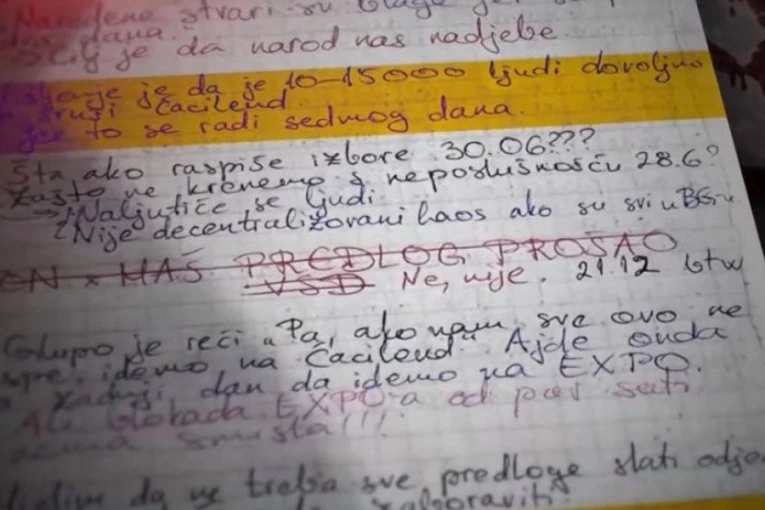 Naređene stvari su blage
dana.
Cilj je da narod nas nadjebe.
je da je 10-15000 ljudi dovoljno
sruši Ćacilend.
jer to se radi sedmog dana.
Šta ako raspiše izbore 30.06???
Zašto ne krenemo s neposlušnošću 28.6?
→ 1 Naljutiće se ljudi.
2 Nije decentralizovani haos ako su svi u BG-u
MAŠ PREDLOG PROŠAO
VSD Ne, nije. 21.12 btw
Glupo je reći „Pa, ako nam sve ovo ne
spe, idemo na Ćacilend" Ajde onda
zadnji dan da idemo na EXPO.
Ali blokada EXPO-a od par sati
nema smisla!!!
da ne treba sve predloge slati
zaboraviti